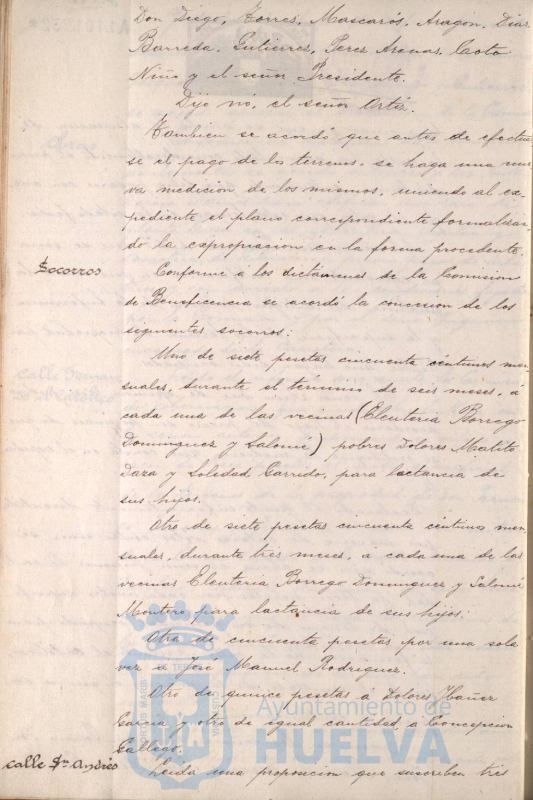 Don Diego, Torres, Mascarós, Aragón, Díaz
Barreda, Gutierres, Perez Arenas, Coto
Niño y el señor Presidente.
Dijo nó, el señor Ortiz.
Tambien se acordó que antes de efectuar
se el pago de los terrenos, se haga una nue
va medicion de los mismos, uniendo al ex-
pediente el plano correspondiente formalizan
do la expropiacion en la forma procedente.
Socorros
Conforme a los dictámenes de la Comision
de Beneficencia se acordó la concesion de los
siguientes socorros:
Uno de siete pesetas cincuenta céntimos men
suales, durante el término de seis meses, á
cada una de las vecinas (Eleuteria Borrego
Dominguez y Salomé) pobres Dolores Matito
Daza y Soledad Garrido, para lactancia de
sus hijos.
Otro de siete pesetas cincuenta céntimos men
suales, durante tres meses, á cada una de las
vecinas Eleuteria Borrego Dominguez y Salomé
Montero para lactancia de sus hijos.
Otro de cincuenta pesetas por una sola
vez á José Manuel Rodriguez.
Otro de quince pesetas á Dolores Ibañez
Garcia y otro de igual cantidad á Concepcion
Gallego.
calle Sn. Andrés
Leida una proposicion que suscriben tres
Ayuntamiento de
HUELVA